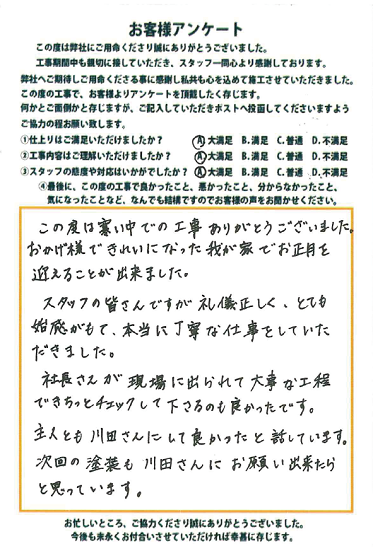 お客様アンケート
この度は弊社にご用命くださり誠にありがとうございました。
工事期間中も親切に接していただき、スタッフ一同心より感謝しております。
弊社へご期待しご用命くださる事に感謝し私共も心を込めて施工させていただきました。
この度の工事で、お客様よりアンケートを頂戴したく存じます。
何かとご面倒かと存じますが、ご記入していただきポストへ投函してくださいますよう
ご協力の程お願い致します。
①仕上りはご満足いただけましたか？ A.大満足 B.満足 C.普通 D.不満足
②工事内容はご理解いただけましたか？ A.大満足 B.満足 C.普通 D.不満足
③スタッフの態度や対応はいかがでしたか？ A.大満足 B.満足 C.普通 D.不満足
④最後に、この度の工事で良かったこと、悪かったこと、分からなかったこと、
気になったことなど、なんでも結構ですのでお客様の声をお聞かせください。
この度は寒い中での工事ありがとうございました。
おかげ様できれいになった我が家でお正月を
迎えることが出来ました。
スタッフの皆さんですが礼儀正しく、とても
好感がもて、本当に丁寧な仕事をしていた
だきました。
社長さんが現場に出られて大事な工程
できちっとチェックして下さるのも良かったです。
主人とも川田さんにして良かったと話しています。
次回の塗装も川田さんにお願い出来たら
と思っています。
お忙しいところ、ご協力くださり誠にありがとうございました。
今後も末永くお付合いさせていただければ幸甚に存じます。